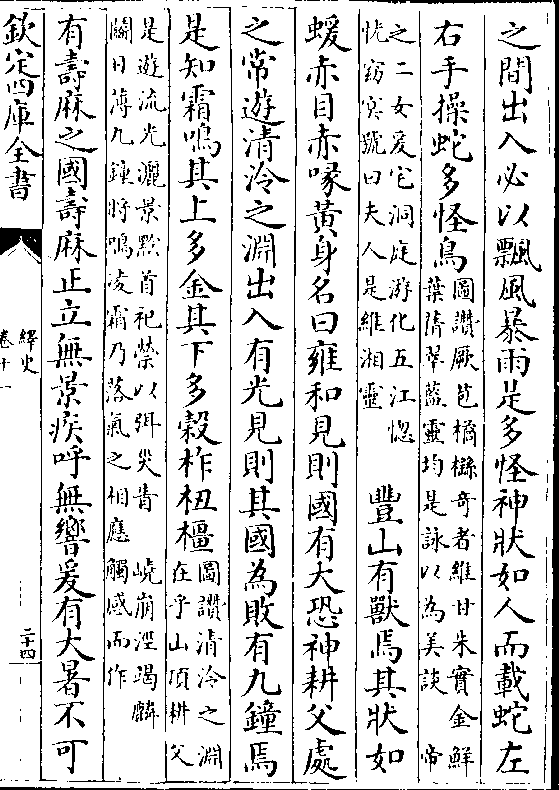 之間出入必以飄風暴雨是多怪神狀如人而載蛇左
右手操蛇多怪鳥
圖讚厥苞橘櫾奇者維甘朱實金鮮
葉蒨翠藍靈均是詠以為美談　帝
之二女爰宅洞庭游化五江惚
恍窈冥號曰夫人是維湘靈
豐山有獸焉其狀如
蝯赤目赤喙黃身名曰雍和見則國有大恐神耕父處
之常遊清泠之淵出入有光見則其國為敗有九鐘焉
是知霜鳴其上多金其下多榖柞杻橿
圖讚清泠之淵
在乎山頂耕父
是遊流光灑景黔首祀禜以弭災眚　嶢崩涇竭麟
鬬日薄九鍾將鳴凌霜乃落氣之相應觸感而作
有壽麻之國壽麻正立無景疾呼無響爰有大暑不可
欽定四庫全書
繹史
卷十一
二十四